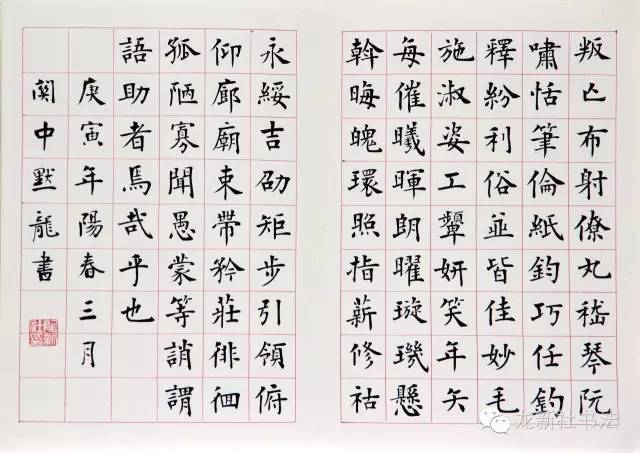 叛亡布射僚丸嵇琴阮
嘯恬筆倫紙鈞巧任釣
釋紛利俗並皆佳妙毛
施淑姿工顰妍笑年矢
每催曦暉朗曜璇璣懸
斡晦魄環照指薪修祜
永綏吉劭矩步引領俯
仰廊廟束帶矜莊徘徊
孤陋寡聞愚蒙等誚謂
語助者焉哉乎也
庚寅年陽春三月
関中默龍書
龙新社书法